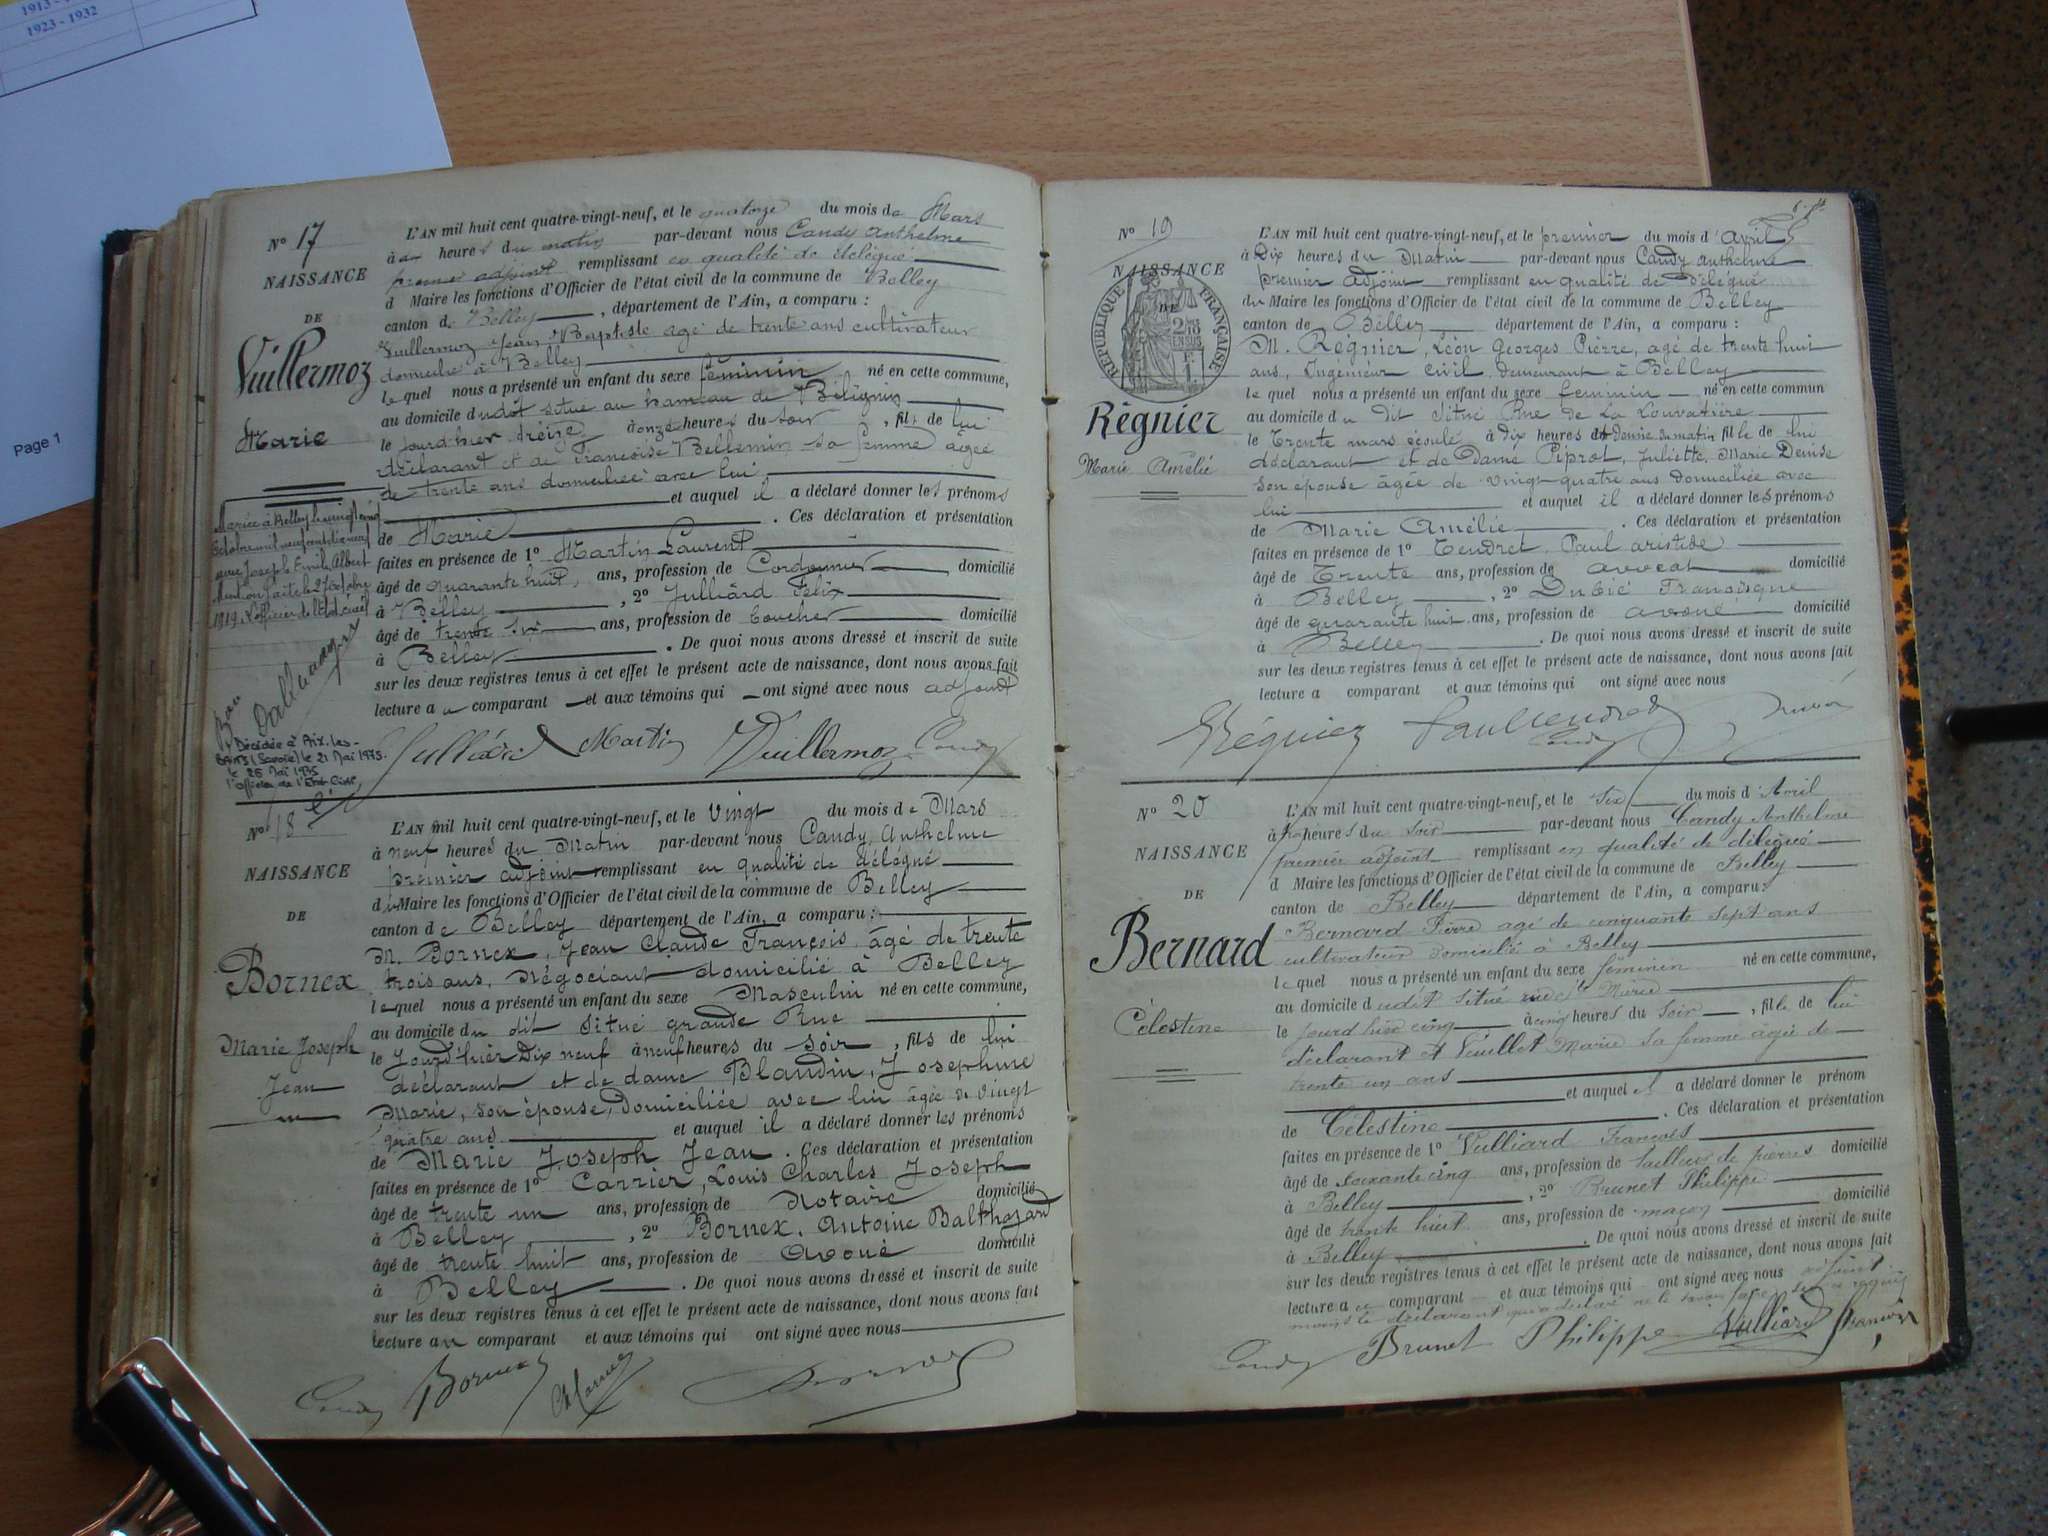 1923 - 1932
Page 1
N° 17
NAISSANCE
DE
Vuillermoz
Marie
L'AN mil huit cent quatre-vingt-neuf, et le quatorze du mois de Mars
à heures du matin par-devant nous Candy Anthelme
premier adjoint remplissant en qualité de délégué
d Maire les fonctions d'Officier de l'état civil de la commune de Belley
canton de Belley, département de l'Ain, a comparu :
Vuillermoz Jean Baptiste agé de trente ans cultivateur
domicilié à Belley
lequel nous a présenté un enfant du sexe féminin né en cette commune,
au domicile dudit situé au hameau de Billignin
le jourd'hier treize à onze heures du soir, fils de lui
déclarant et de Françoise Bellemin sa femme âgée
de trente ans domiciliée avec lui
et auquel il a déclaré donner les prénoms
de Marie. Ces déclaration et présentation
faites en présence de 1° Martin Laurent
âgé de quarante huit ans, profession de Cordonnier domicilié
à Belley, 2° Julliard Felix
âgé de trente six ans, profession de boucher domicilié
à Belley. De quoi nous avons dressé et inscrit de suite
sur les deux registres tenus à cet effet le présent acte de naissance, dont nous avons fait
lecture au comparant et aux témoins qui ont signé avec nous adjoint
Julliard Martin Vuillermoz Candy
Mariée à Belley le vingt cinq
Octobre mil neuf cent dix neuf
avec Joseph Emile Albert
Mention faite le 27 octobre
1919. L'officier de l'Etat civil
Décédée à Aix-les-
Bains (Savoie) le 21 Mai 1975.
le 26 Mai 1975
l'officier de l'Etat Civil,
N° 18
NAISSANCE
DE
Bornex
Marie Joseph
Jean
L'AN mil huit cent quatre-vingt-neuf, et le Vingt du mois de Mars
à neuf heures du Matin par-devant nous Candy, Anthelme
premier adjoint remplissant en qualité de délégué
du Maire les fonctions d'Officier de l'état civil de la commune de Belley
canton de Belley département de l'Ain, a comparu :
M. Bornex, Jean Claude François, âgé de trente
trois ans, Négociant domicilié à Belley
lequel nous a présenté un enfant du sexe Masculin né en cette commune,
au domicile du dit Situé grande Rue
le Jourd'hier Dix neuf à neuf heures du soir, fils de lui
déclarant et de dame Blandin, Josephine
Marie, son épouse, Domiciliée avec lui âgée de vingt
quatre ans et auquel il a déclaré donner les prénoms
de Marie Joseph Jean. Ces déclaration et présentation
faites en présence de 1° Carrier, Louis Charles Joseph
âgé de trente un ans, profession de Notaire domicilié
à Belley, 2° Bornex, Antoine Balthazard
âgé de trente huit ans, profession de Avoué domicilié
à Belley. De quoi nous avons dressé et inscrit de suite
sur les deux registres tenus à cet effet le présent acte de naissance, dont nous avons fait
lecture au comparant et aux témoins qui ont signé avec nous
Candy Bornex
N° 19
NAISSANCE
DE
RÉPUBLIQUE FRANÇAISE
Régnier
Marie Amélie
L'AN mil huit cent quatre-vingt-neuf, et le premier du mois d'Avril
à Dix heures du Matin par-devant nous Candy Anthelme
premier Adjoint remplissant en qualité de Délégué
du Maire les fonctions d'Officier de l'état civil de la commune de Belley
canton de Belley département de l'Ain, a comparu :
M. Régnier, Léon Georges Pierre, agé de trente huit
ans, Ingénieur civil, demeurant à Belley
lequel nous a présenté un enfant du sexe feminin né en cette commun
au domicile du Dit Situé Rue de La Louvatière
le Trente mars écoulé à dix heures et Demie du matin fille de lui
déclarant et de Dame Piprot, Juliette, Marie Denise
son épouse âgée de vingt quatre ans Domiciliée avec
lui et auquel il a déclaré donner les prénoms
de Marie Amélie. Ces déclaration et présentation
faites en présence de 1° Tendret, Paul aristide
âgé de Trente ans, profession de avocat domicilié
à Belley, 2° Françisque
âgé de quarante huit ans, profession de avoué domicilié
à Belley. De quoi nous avons dressé et inscrit de suite
sur les deux registres tenus à cet effet le présent acte de naissance, dont nous avons fait
lecture a comparant et aux témoins qui ont signé avec nous
Régnier Paul Tendret
Candy
N° 20
NAISSANCE
DE
Bernard
Célestine
L'AN mil huit cent quatre-vingt-neuf, et le Six du mois d'Avril
à heures du soir par-devant nous Candy Anthelme
premier adjoint remplissant en qualité de délégué
d Maire les fonctions d'Officier de l'état civil de la commune de Belley
canton de Belley département de l'Ain, a comparu :
Bernard Pierre agé de cinquante sept ans
cultivateur domicilié à Belley
lequel nous a présenté un enfant du sexe féminin né en cette commune,
au domicile dudit situé rue
le jourd'hier cinq à cinq heures du soir, fille de lui
déclarant et Veuillet Marie sa femme agée de
trente un ans
et auquel il a déclaré donner le prénom
de Célestine. Ces déclaration et présentation
faites en présence de 1° Vulliard François
âgé de soixante cinq ans, profession de tailleur de pierres domicilié
à Belley, 2° Brunet Philippe
âgé de trente huit ans, profession de maçon domicilié
à Belley. De quoi nous avons dressé et inscrit de suite
sur les deux registres tenus à cet effet le présent acte de naissance, dont nous avons fait
lecture au comparant et aux témoins qui ont signé avec nous adjoint
moins le déclarant qui a déclaré ne le savoir faire de ce requis
Candy Brunet Philippe Vulliard François